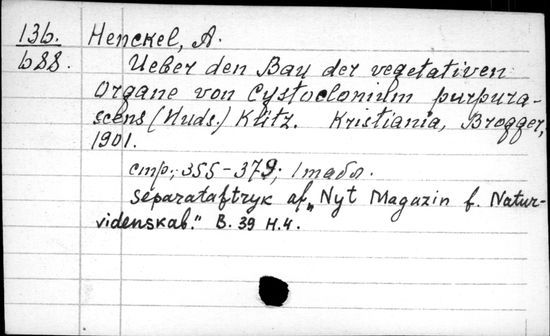 13b. Henckel, A.
b88. Ueber den Bau der vegetativen
Organe von Cystoclonium purpura-
scens (Huds.) Kütz. Kristiania, Brøgger,
1901.
стр., 355-379; 1 табл.
Separataftryk af „Nyt Magazin f. Natur-
videnskab." B. 39 H.4.